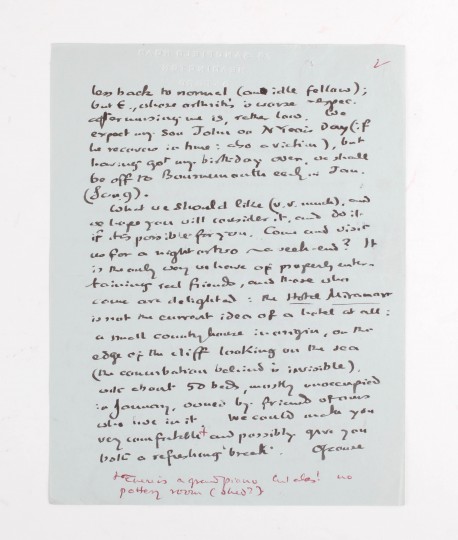 2
back to normal (an idle fellow);
but E., whose arthritis is worse espec.
after nursing me is, rather low. We
expect my son John on N Years Day (if
he recovers in time: also a victim), but
having got my birthday over, we shall
be off to Bournemouth early in Jan.
What we should like (v.v. much), and
we hope you will consider it, and do it
if it's possible for you. Come and visit
us for a night or two – a week-end? It
is the only way we have of properly enter-
taining real friends, and those who
come are delighted: the Hotel Miramar
is not the current idea of a hotel at all:
a small country house in origin, on the
edge of the cliff looking on the sea
(the conurbation behind is invisible),
with about 50 beds, mostly unoccupied
in January, owned by friend of ours
who live in it. We could make you
very comfortable+ and possibly give you
both a refreshing 'break'. Of course
+ There is a grand piano but alas! no
pottery room (shed?)